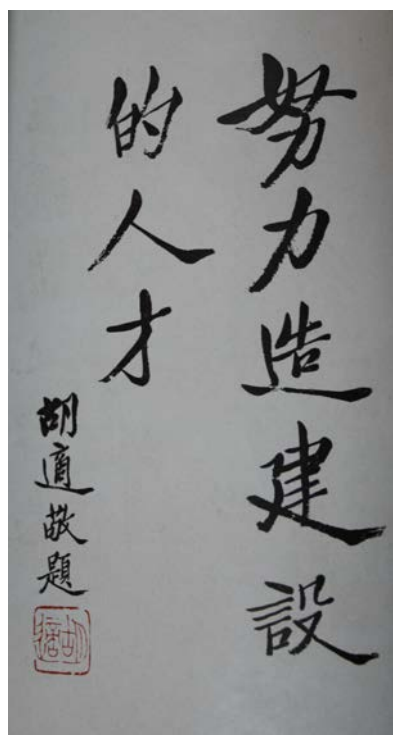 努力造建設
的人才
胡適敬題